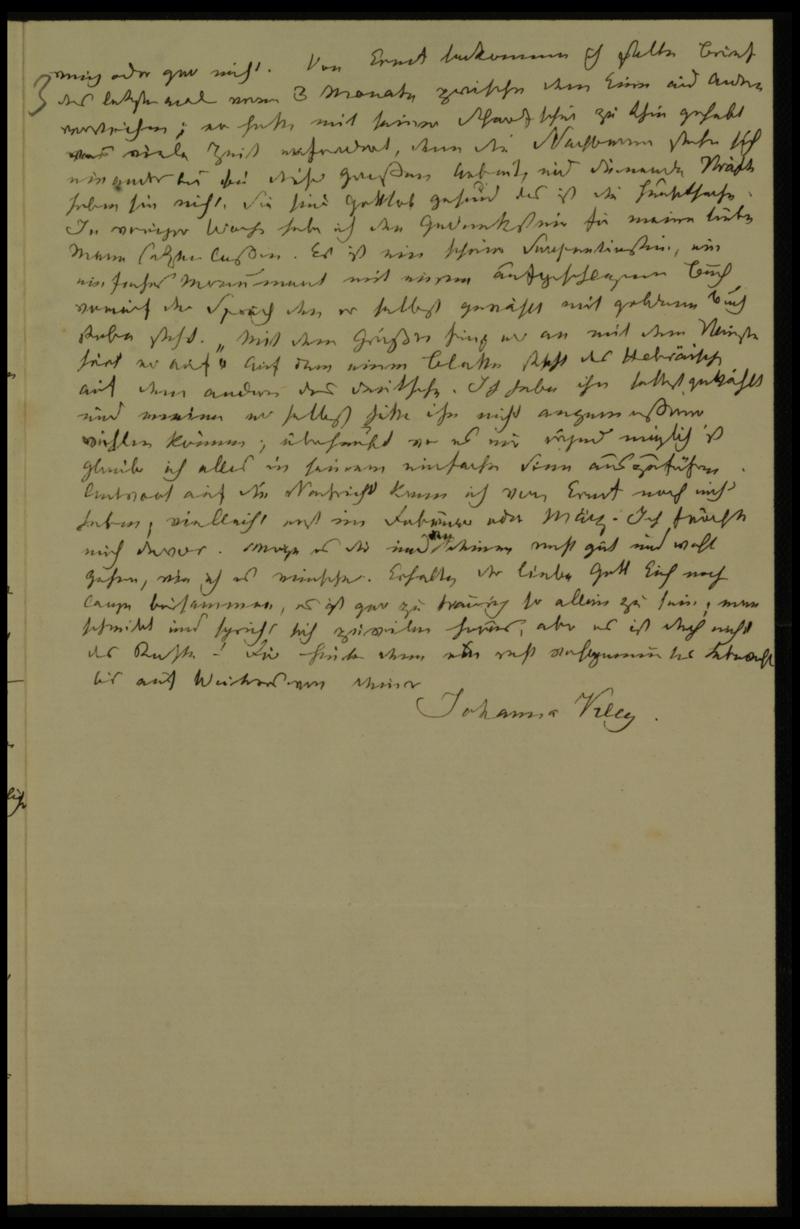 3
wenig oder gar nicht. Von Ernst bekomme ich selten Brief
das letzte mal waren 3 Monate zwischen dem Einen und Andern
verstrichen; er hatte mit seiner zu thun gehabt
was viele Zeit erfordert, denn die Nachbarn stehn sich
einander bei bei dieser großen Arbeit, und dienende Kräfte
haben sie nicht. Sie sind Gottlob gesund das ist die Hauptsache.
In voriger Woche habe ich den Gedenkstein für meinen lieben
Mann setzen lassen. Es ist ein schöner Serpentinstein, ein
einfaches Monument mit einem aufgeschlagenen Buch
worauf der Spruch den er selbst gewählt mit goldenen Buch
staben steht. „Mit dem Größten fing er an mit dem Kleinsten
hört er auf“ Auf dem einen Blatte steht das Hebräische
auf dem andern das deutsche. Ich habe ihn selbst gewählt
und meine er selbst hätte ihn nicht angemessener
wählen können; überhaupt wo es mir irgend möglich ist
glaube ich alles in seinem einfachen Sinn auszuführen.
Antwort auf die Nachricht kann ich von Ernst noch nicht
haben, vielleicht erst im Februar oder März. Ich fürchte
mich davor. Möge es dir und den Deinen recht gut und wohl
gehen, wie ich es wünsche. Erhalte der liebe Gott Euch noch
lange beisammen, es ist gar zu traurig so allein zu sein; man
schreibt und spricht sich zuweilen heraus, aber es ist doch nicht
das Rechte! Sie denn recht
bis auf Weiteres von deiner
Johanna